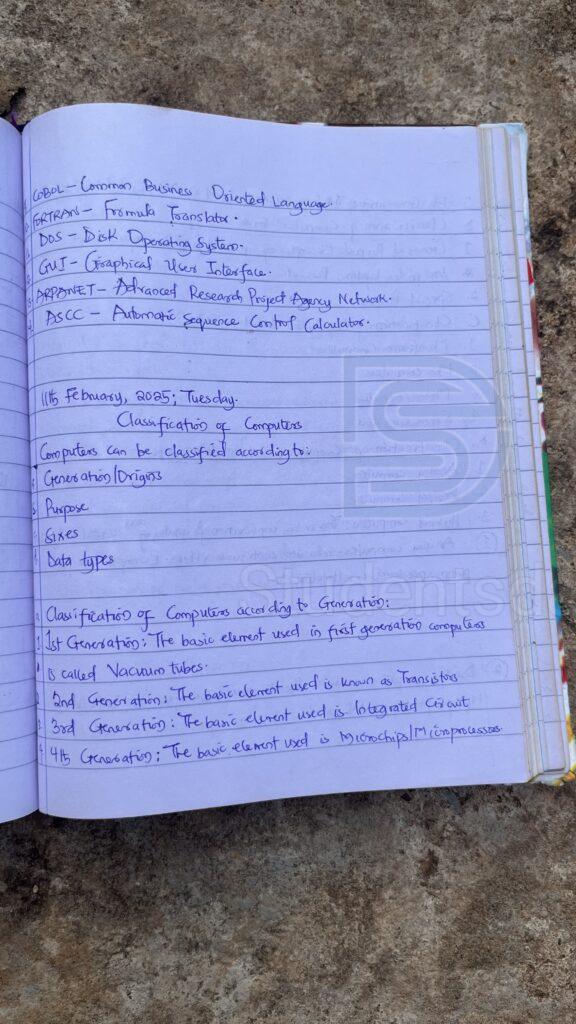 COBOL - Common Business Oriented Language.
FORTRAN - Formula Translator.
DOS - Disk Operating System.
GUI - Graphical User Interface.
ARPANET - Advanced Research Project Agency Network.
ASCC - Automatic Sequence Control Calculator.
11th February, 2025; Tuesday.
Classification of Computers
Computers can be classified according to:
Generation/Origins
Purpose
Sizes
Data types
Classification of Computers according to Generation:
1st Generation: The basic element used in first generation computers
is called Vacuum tubes.
2nd Generation: The basic element used is known as Transistors
3rd Generation: The basic element used is Integrated Circuit
4th Generation: The basic element used is Microchips/Microprocessors.